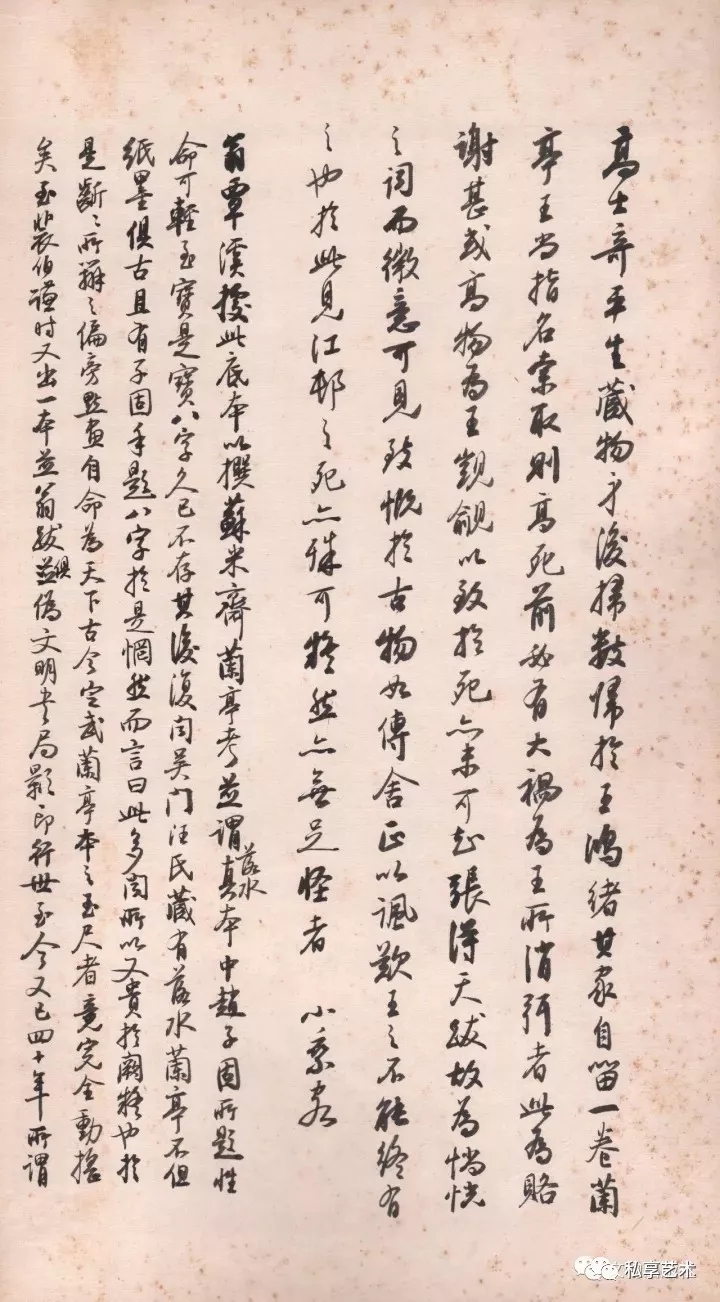 高士奇平生藏物身後掃數歸於王鴻緒其家自留一卷蘭
亭王尚指名索取則高死前必有大禍為王所消弭者此為賂
謝甚或高物為王覬覦以致於死亦未可知張得天跋故為惝恍
之詞而微意可見致慨於古物如傳舍正以諷歎王之不能終有
之也於此見江邨之死亦殊可疑然亦無足怪者 小桼
翁覃溪據此底本以撰蘇米齋蘭亭考並謂落水真本中趙子固所題性
命可輕至寶是寶八字久已不存其後復聞吳門汪氏藏有落水蘭亭不但
紙墨俱古且有子固手題八字於是惘然而言曰此多聞所以又貴於闕疑也於
是斷斷所辨之偏旁點畫自命為天下古今定武蘭亭本之玉尺者竟完全動搖
矣至裴伯謙時又出一本並翁跋俱偽文明書局影印行世至今又已四十年所謂
私享艺术